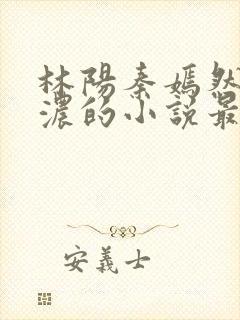 林陽秦嫣然
濃的小說最
安義士